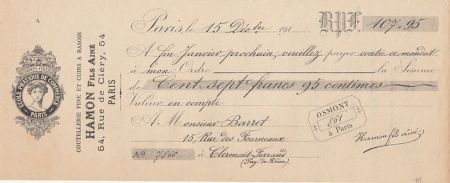 COUTELLERIE FINE ET CUIRS A RASOIR
HAMON FILS AINÉ
54, Rue de Cléry, 54
PARIS
ÉCOLE PRATIQUE DE COMMERCE
PARIS
Paris, le 15 Xbre 191 B.P.F. 107.95
A fin Janvier prochain, veuillez payer contre ce mandat
à mon Ordre la Somme
de Cent sept francs 95 centimes
Valeur en compte
A Monsieur Barret
15, Rue des Fourneaux
No 7860 à Clermont-Ferrand
(Puy de Dôme)
OSMONT
à Paris
Hamon fils aîné